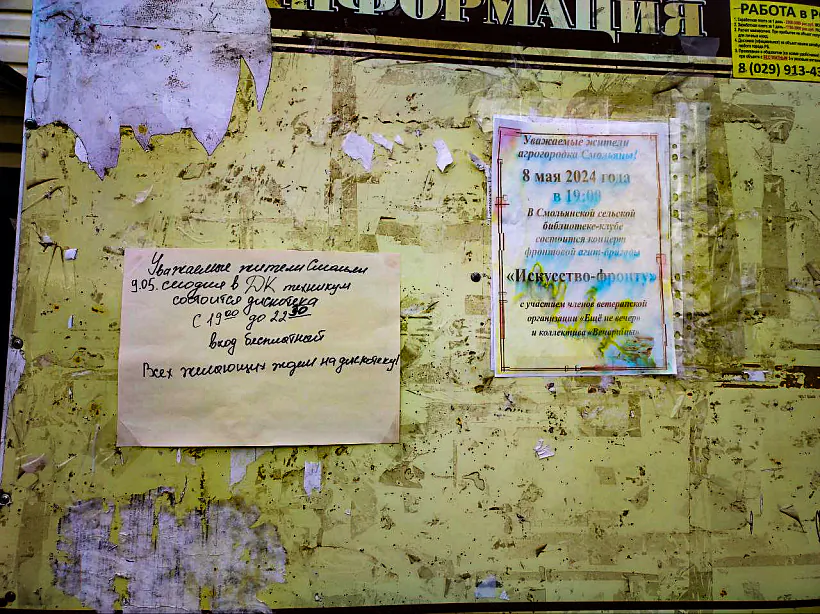 ИНФОРМАЦИЯ
РАБОТА в
8 (029) 913-43
Уважаемые жители
агрогородка Смольяны!
8 мая 2024 года
в 19:00
В Смольянской сельской
библиотеке-клубе
состоится концерт
фронтовой агит-бригады
«Искусство-фронту»
с участием членов ветеранской
организации «Ещё не вечер»
и коллектива
Уважаемые жители Смольян
9.05. сегодня в ДК техникум
состоится дискотека
С 19 00 до 22 30
вход бесплатный
Всех желающих ждем на дискотеку!